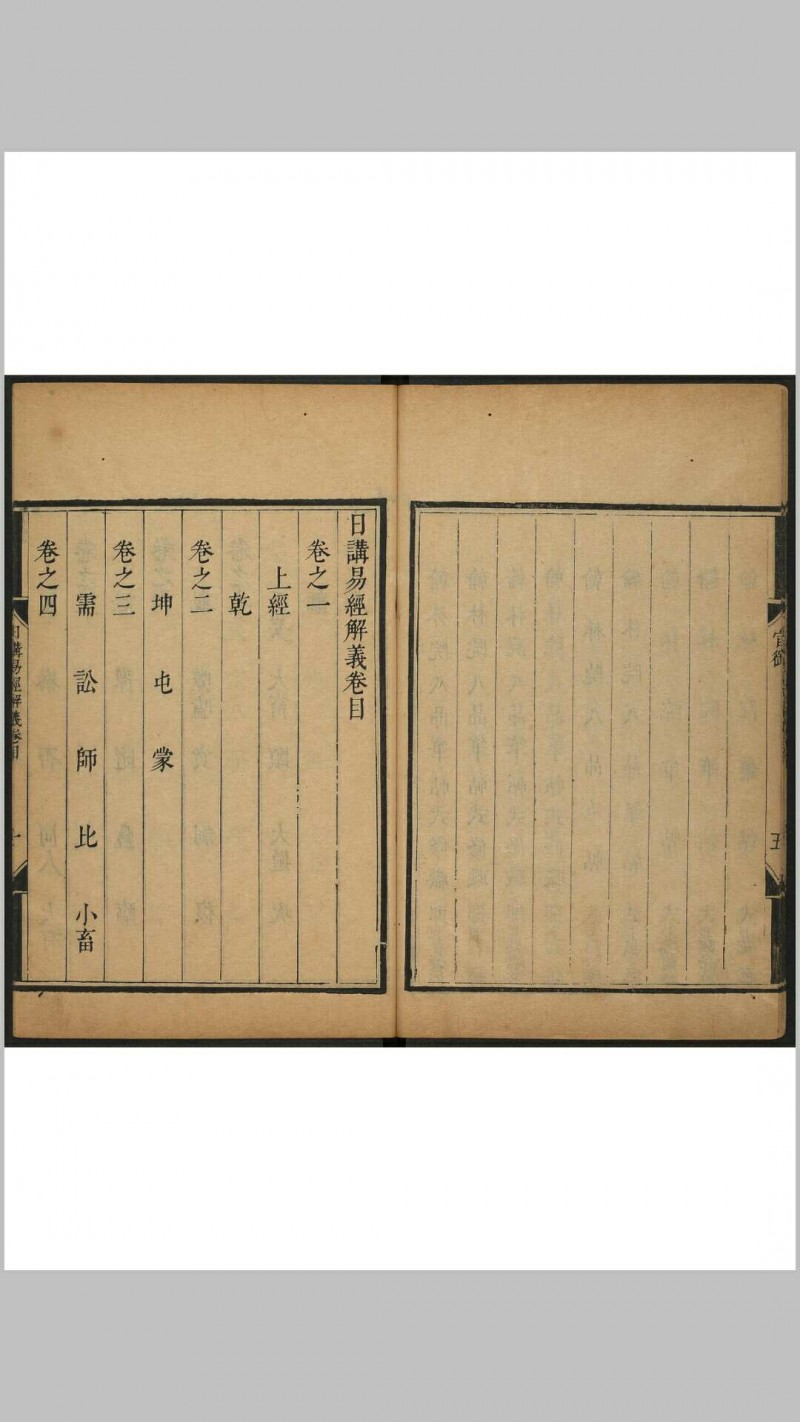 官銜
五
日講易經解義卷目
卷之一
上經
乾
卷之二
坤 屯 蒙
卷之三
需 訟 師 比 小畜
卷之四
日講易經解義卷目